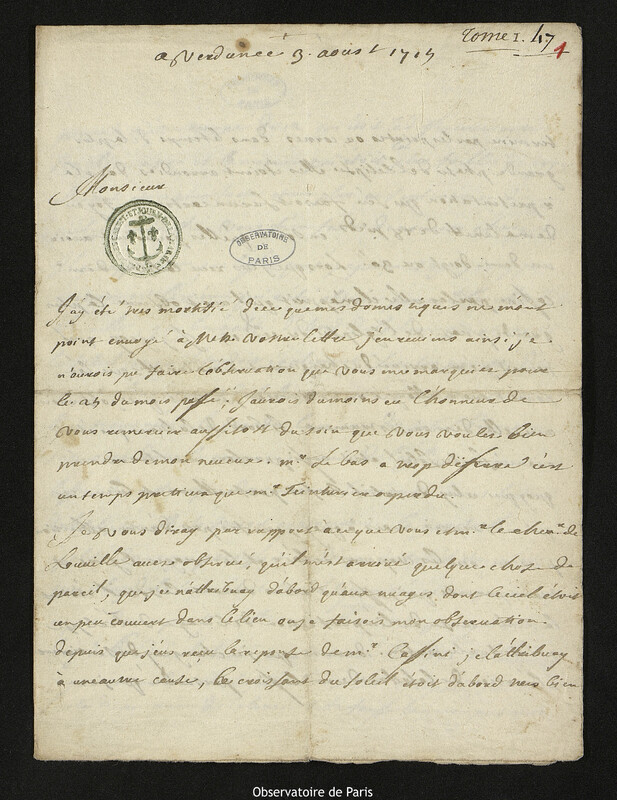 Tome 1. 47
1
a Verdun ce 3. aoust 1715
Monsieur
OBSERVATOIRE
DE
PARIS
J'ay été tres mortifié de ce que mes domestiques ne m'ont
point envoyé à Metz vostre lettre j'en reviens ainsi je
n'aurois pu faire l'observation que vous me marquiez pour
le 25 du mois passé; j'aurois du moins eu l'honneur de
vous remercier aussitost du soin que vous voulez bien
prendre de mon neveu. mr. le bas a trop differé c'est
un temps pretieux que mr. a perdu.
Je vous diray par rapport a ce que vous et mr. le chevr. de
Louville avez observé, qu'il m'est arrivé quelque chose de
pareil, que je n'attribuay d'abord qu'aux nuages dont le ciel étoit
un peu couvert dans le lieu ou je faisois mon observation
depuis que j'eus reçu la reponse de mr. Cassini je l'attribuay
à une autre cause, le croissant du soleil étoit d'abord bien
Observatoire de Paris